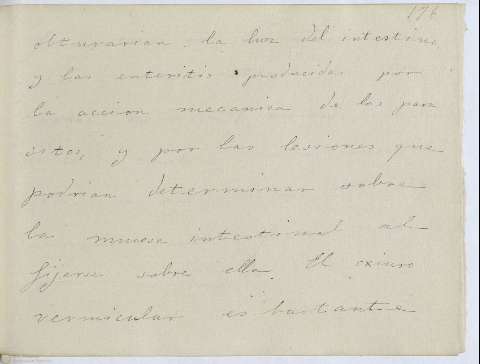 176
obturarian la luz del intestino
y las enteritis producidas por
la accion mecanica de los para
sitos, y por las lesiones que
podrian determinar sobre
la mucosa intestinal al
fijarse sobre ella. El oxiuro
vermicular es bastante